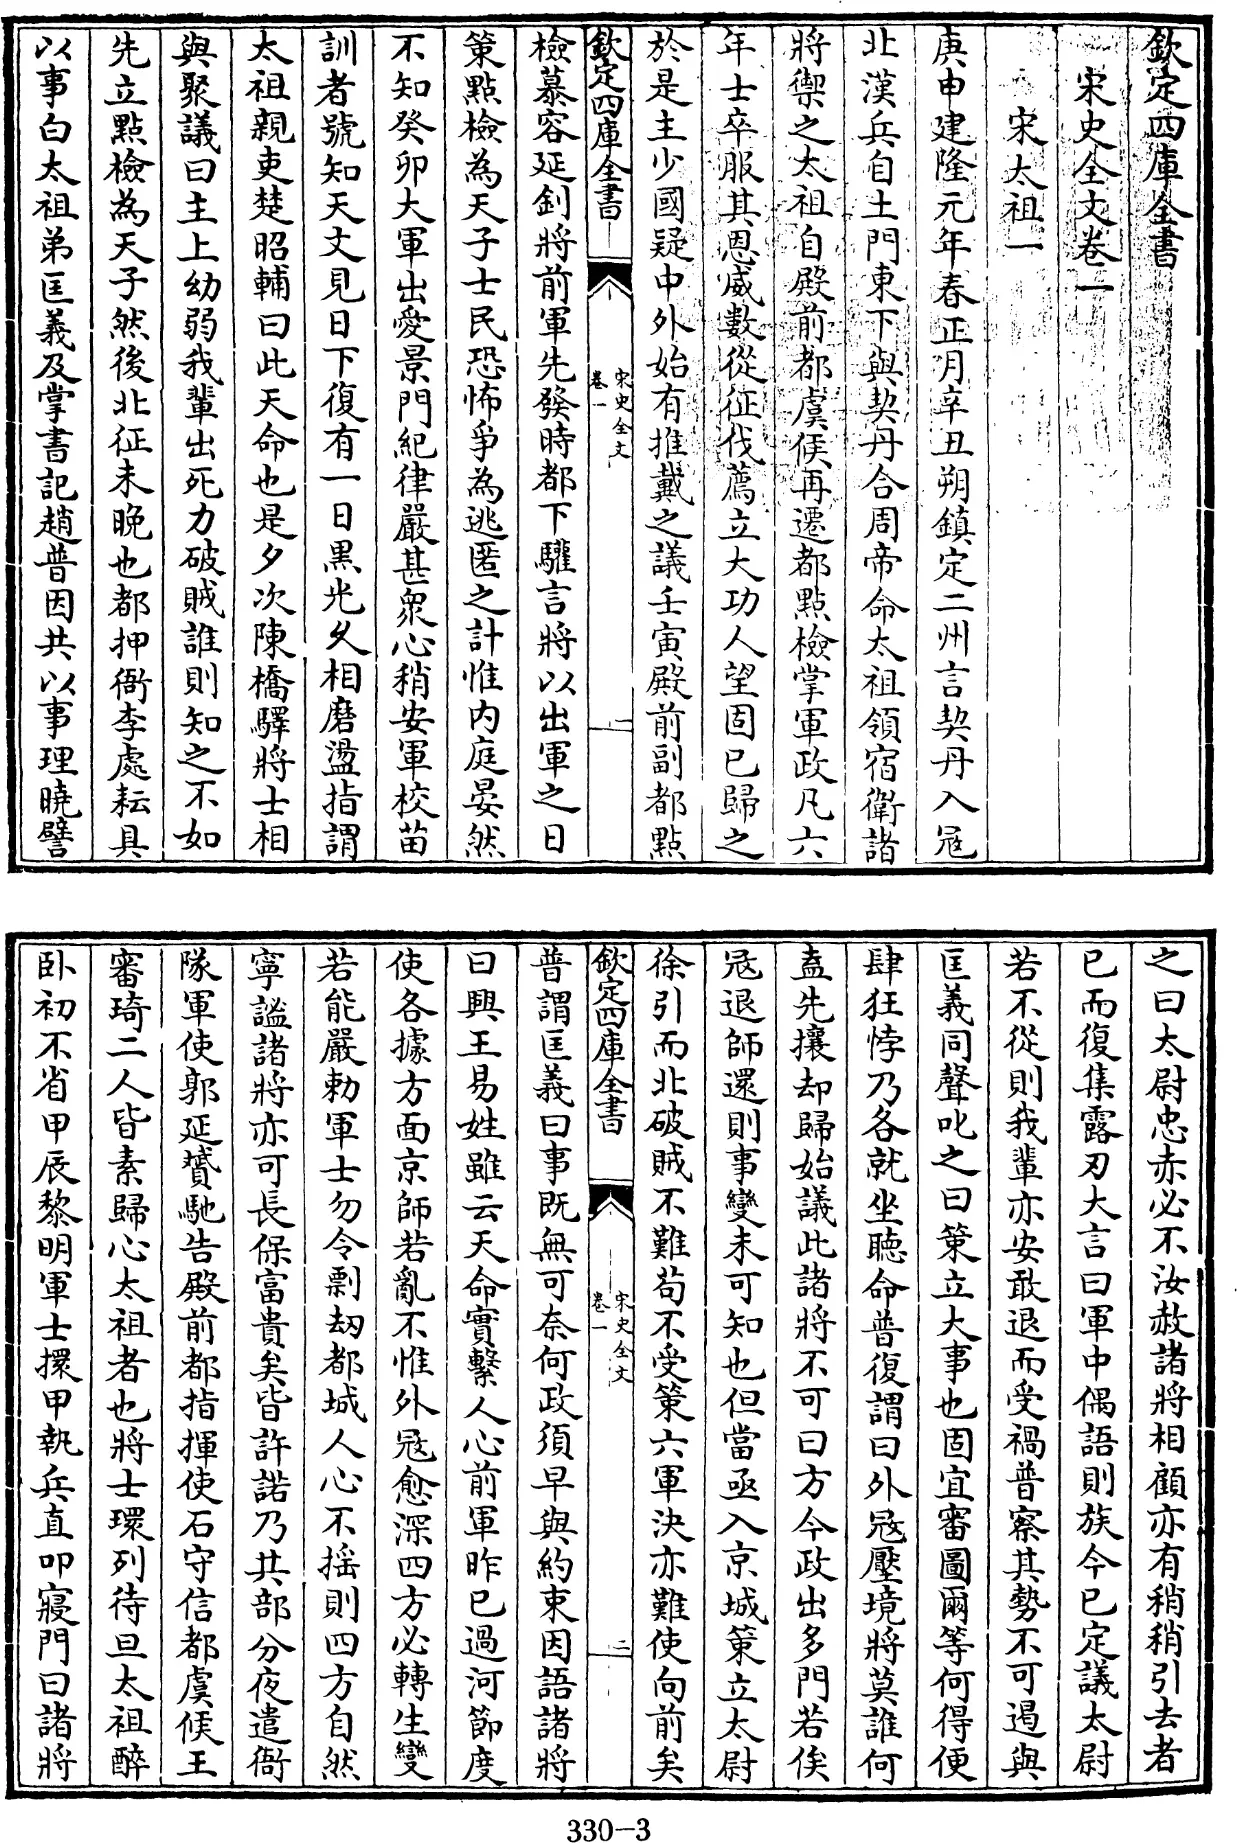 欽定四庫全書
宋史全文卷一
宋太祖一
庚申建隆元年春正月辛丑朔鎮定二州言契丹入冦
北漢兵自土門東下與契丹合周帝命太祖領宿衛諸
將禦之太祖自殿前都虞侯再遷都點檢掌軍政凡六
年士卒服其恩威數從征伐薦立大功人望固已歸之
於是主少國疑中外始有推戴之議壬寅殿前副都點
欽定四庫全書
宋史全文
卷一
一
檢慕容延釗將前軍先發時都下驩言將以出軍之日
策點檢為天子士民恐怖爭為逃匿之計惟内庭晏然
不知癸卯大軍出愛景門紀律嚴甚衆心稍安軍校苗
訓者號知天文見日下復有一日黑光久相磨盪指謂
太祖親吏楚昭輔曰此天命也是夕次陳橋驛將士相
與聚議曰主上幼弱我輩出死力破賊誰則知之不如
先立點檢為天子然後北征未晚也都押衙李處耘具
以事白太祖弟匡義及掌書記趙普因共以事理曉譬
之曰太尉忠赤必不汝赦諸將相顧亦有稍稍引去者
已而復集露刃大言曰軍中偶語則族今已定議太尉
若不從則我輩亦安敢退而受禍普察其勢不可遏與
匡義同聲叱之曰策立大事也固宜審圖爾等何得便
肆狂悖乃各就坐聽命普復謂曰外冦壓境將莫誰何
盍先攘却歸始議此諸將不可曰方今政出多門若俟
冦退師還則事變未可知也但當亟入京城策立太尉
徐引而北破賊不難苟不受策六軍決亦難使向前矣
欽定四庫全書
宋史全文
卷一
二
普謂匡義曰事既無可奈何政須早與約束因語諸將
曰興王易姓雖云天命實繫人心前軍昨已過河節度
使各據方面京師若亂不惟外冦愈深四方必轉生變
若能嚴勅軍士勿令剽劫都城人心不摇則四方自然
寧謐諸將亦可長保富貴矣皆許諾乃共部分夜遣衙
隊軍使郭延贇馳告殿前都指揮使石守信都虞候王
審琦二人皆素歸心太祖者也將士環列待旦太祖醉
卧初不省甲辰黎明軍士擐甲執兵直叩寢門曰諸將
330-3